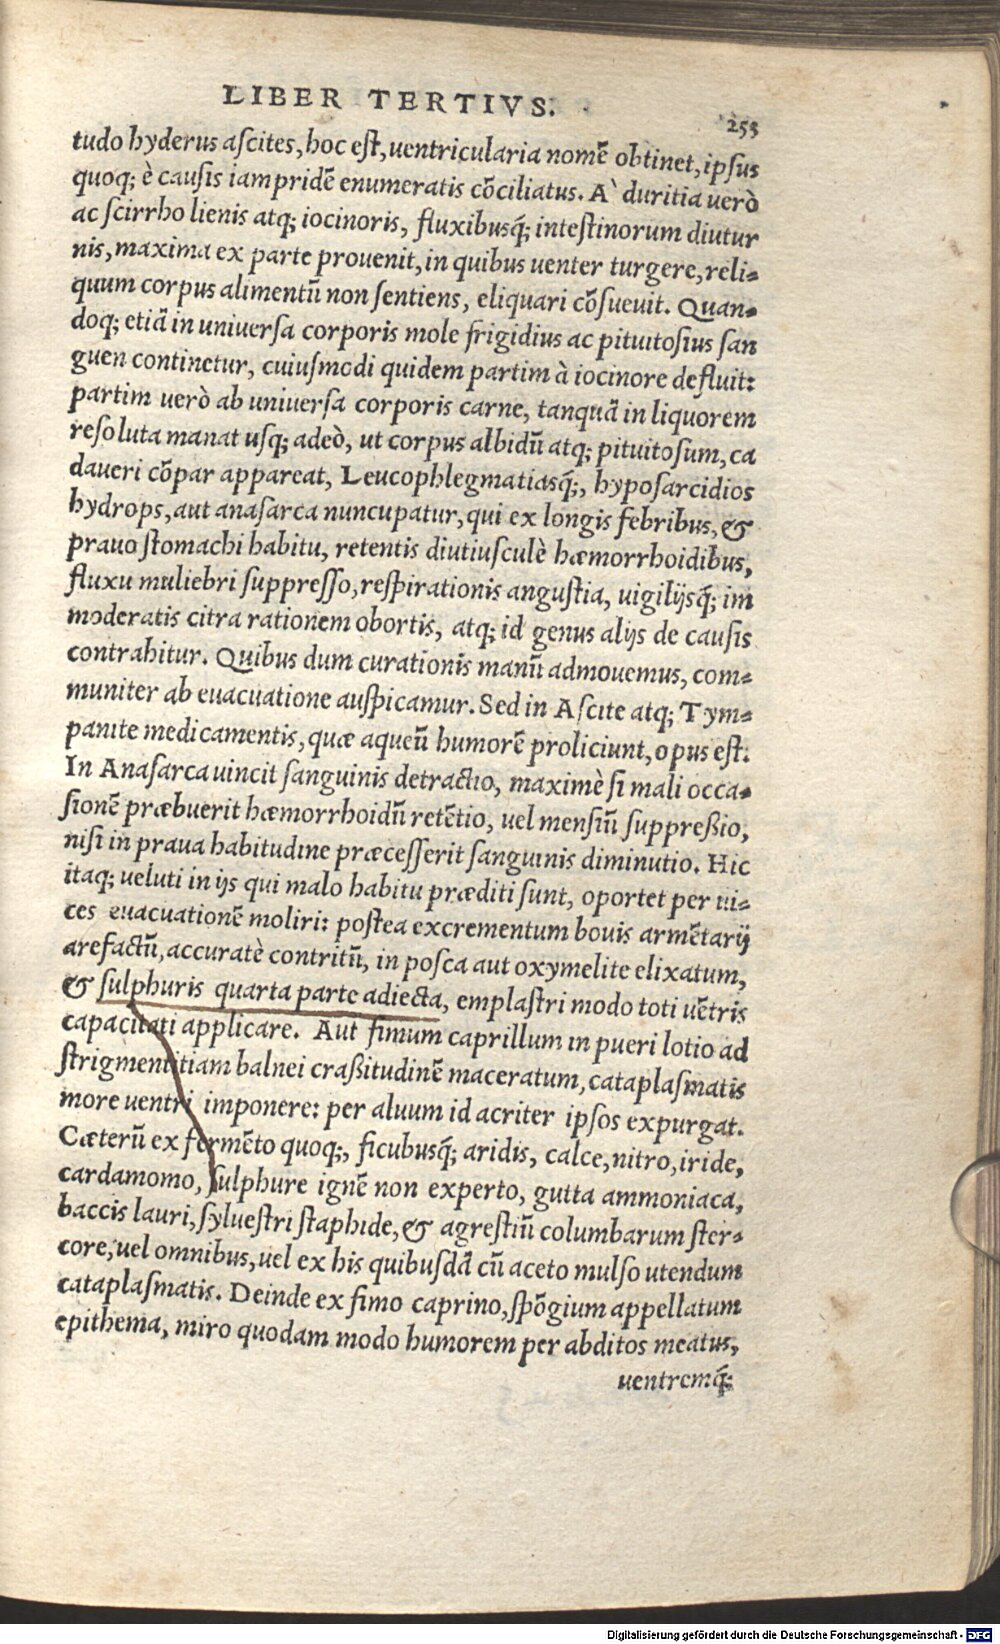 LIBER TERTIVS.
253
tudo hyderus aſcites, hoc eſt, uentricularia nomē obtinet, ipſus
quoq; è cauſis iampridē enumeratis cōciliatus. A` duritia uerò
ac ſcirrho lienis atq; iocinoris, fluxibusq́; inteſtinorum diutur
nis, maxima ex parte prouenit, in quibus uenter turgere, reli-
quum corpus alimentū non ſentiens, eliquari cōſueuit. Quan-
doq; etiā in uniuerſa corporis mole frigidius ac pituitoſius ſan
guen continetur, cuiuſmodi quidem partim à iocinore defluit:
partim uerò ab uniuerſa corporis carne, tanquā in liquorem
reſoluta manat uſq; adeò, ut corpus albidū atq; pituitoſum, ca
daueri cōpar appareat, Leucophlegmatiasq́;, hypoſarcidios
hydrops, aut anaſarca nuncupatur, qui ex longis febribus, &
prauo ſtomachi habitu, retentis diutiuſculè hæmorrhoidibus,
fluxu muliebri ſuppreſſo, reſpirationis anguſtia, uigilijsq́; im
moderatis citra rationem obortis, atq; id genus alijs de cauſis
contrahitur. Quibus dum curationis manū admouemus, com-
muniter ab euacuatione auſpicamur. Sed in Aſcite atq; Tym-
panite medicamentis, quæ aqueū humorē proliciunt, opus eſt.
In Anaſarca uincit ſanguinis detractio, maximè ſi mali occa-
ſionē præbuerit hæmorrhoidū retētio, uel menſiū ſuppreßio,
niſi in praua habitudine præceſſerit ſanguinis diminutio. Hic
itaq; ueluti in ijs qui malo habitu præditi ſunt, oportet per ui-
ces euacuationē moliri: poſtea excrementum bouis armētarij
arefactū, accuratè contritū, in poſca aut oxymelite elixatum,
& ſulphuris quarta parte adiecta, emplaſtri modo toti uētris
capacitati applicare. Aut fimum caprillum in pueri lotio ad
ſtrigmentitiam balnei craßitudinē maceratum, cataplaſmatis
more uentri imponere: per aluum id acriter ipſos expurgat.
Cæterū ex fermēto quoq;, ficubusq́; aridis, calce, nitro, iride,
cardamomo, ſulphure ignē non experto, gutta ammoniaca,
baccis lauri, ſylueſtri ſtaphide, & agreſtiū columbarum ſter-
core, uel omnibus, uel ex his quibuſdā cū aceto mulſo utendum
cataplaſmatis. Deinde ex fimo caprino, ſpōgium appellatum
epithema, miro quodam modo humorem per abditos meatus,
uentremq́;
Digitalisierung gefördert durch die Deutsche Forschungsgemeinschaft - DFG